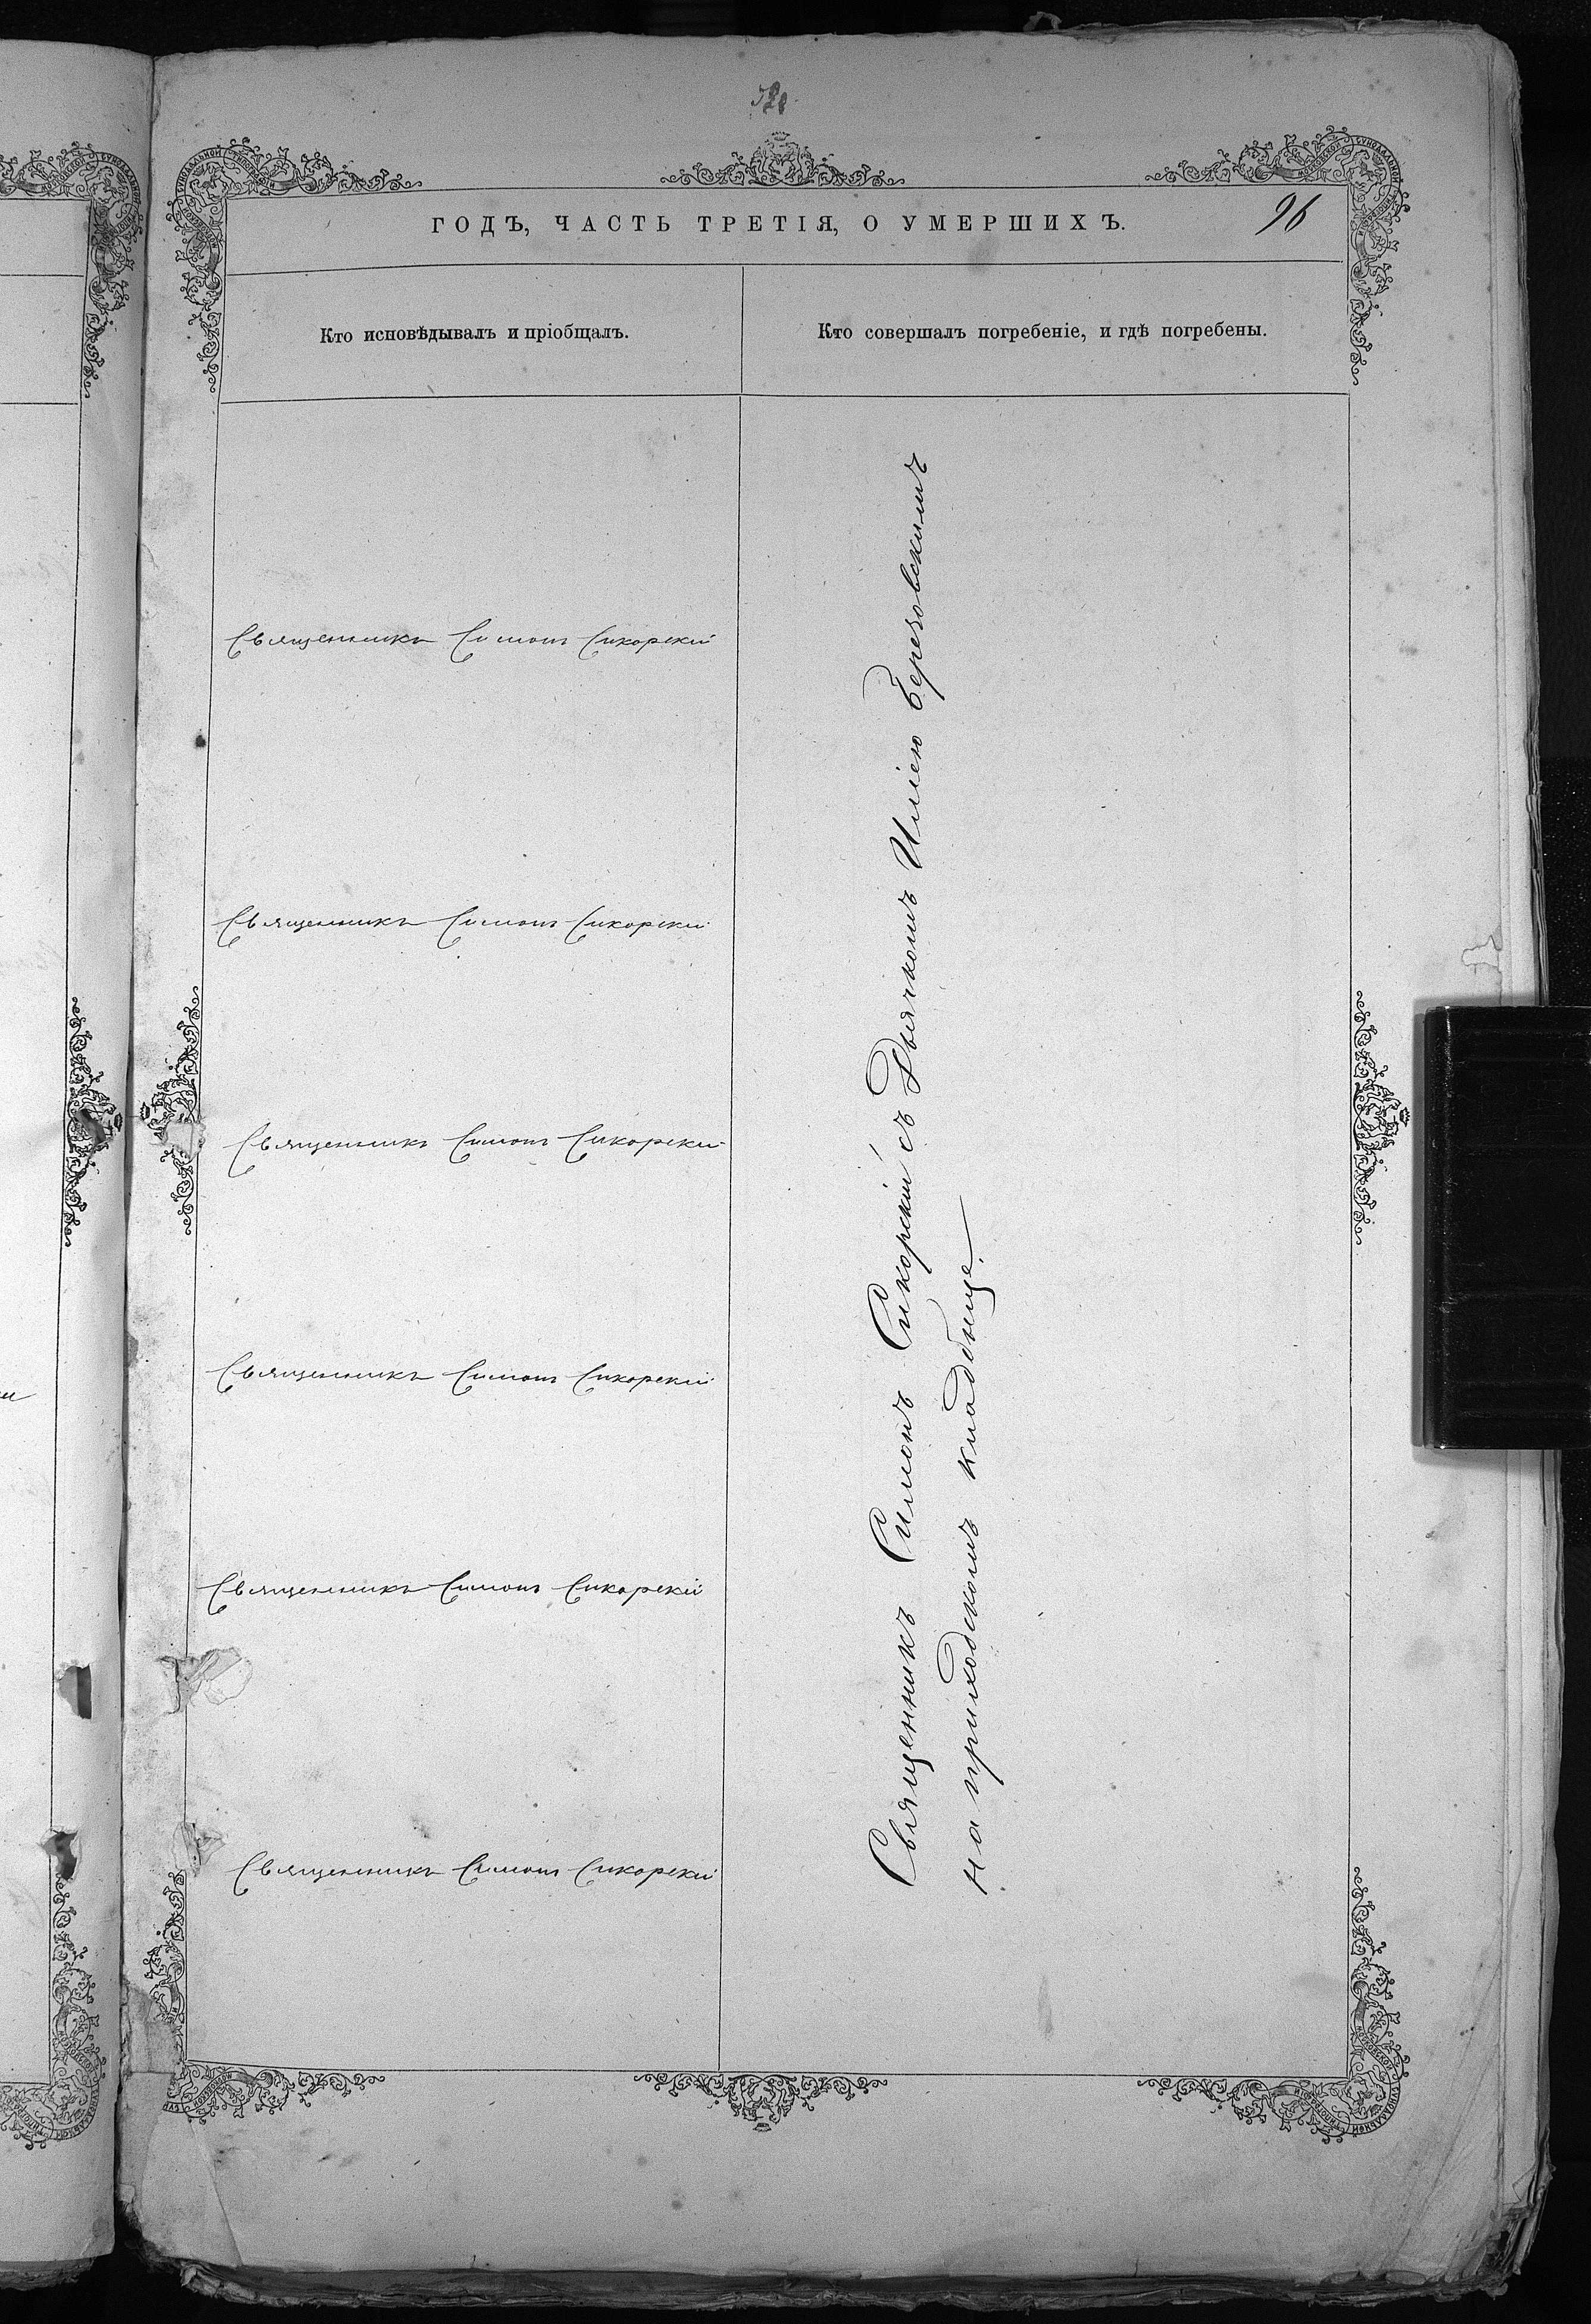 ГОДЪ, ЧАСТЬ ТРЕТІЯ, О УМЕРШИХЪ.
96
Кто исповѣдывалъ и пріобщалъ.
Кто совершалъ погребеніе, и гдѣ погребены.
Священникъ Симонъ Сикорскій
Священникъ Симонъ Сикорскій
Священникъ Симонъ Сикорскій
Священникъ Симонъ Сикорскій
Священникъ Симонъ Сикорскій
Священникъ Симонъ Сикорскій
Священникъ Симонъ Сикорскій съ Дьячкомъ Иліею Березовскимъ
на приходскомъ кладбище.